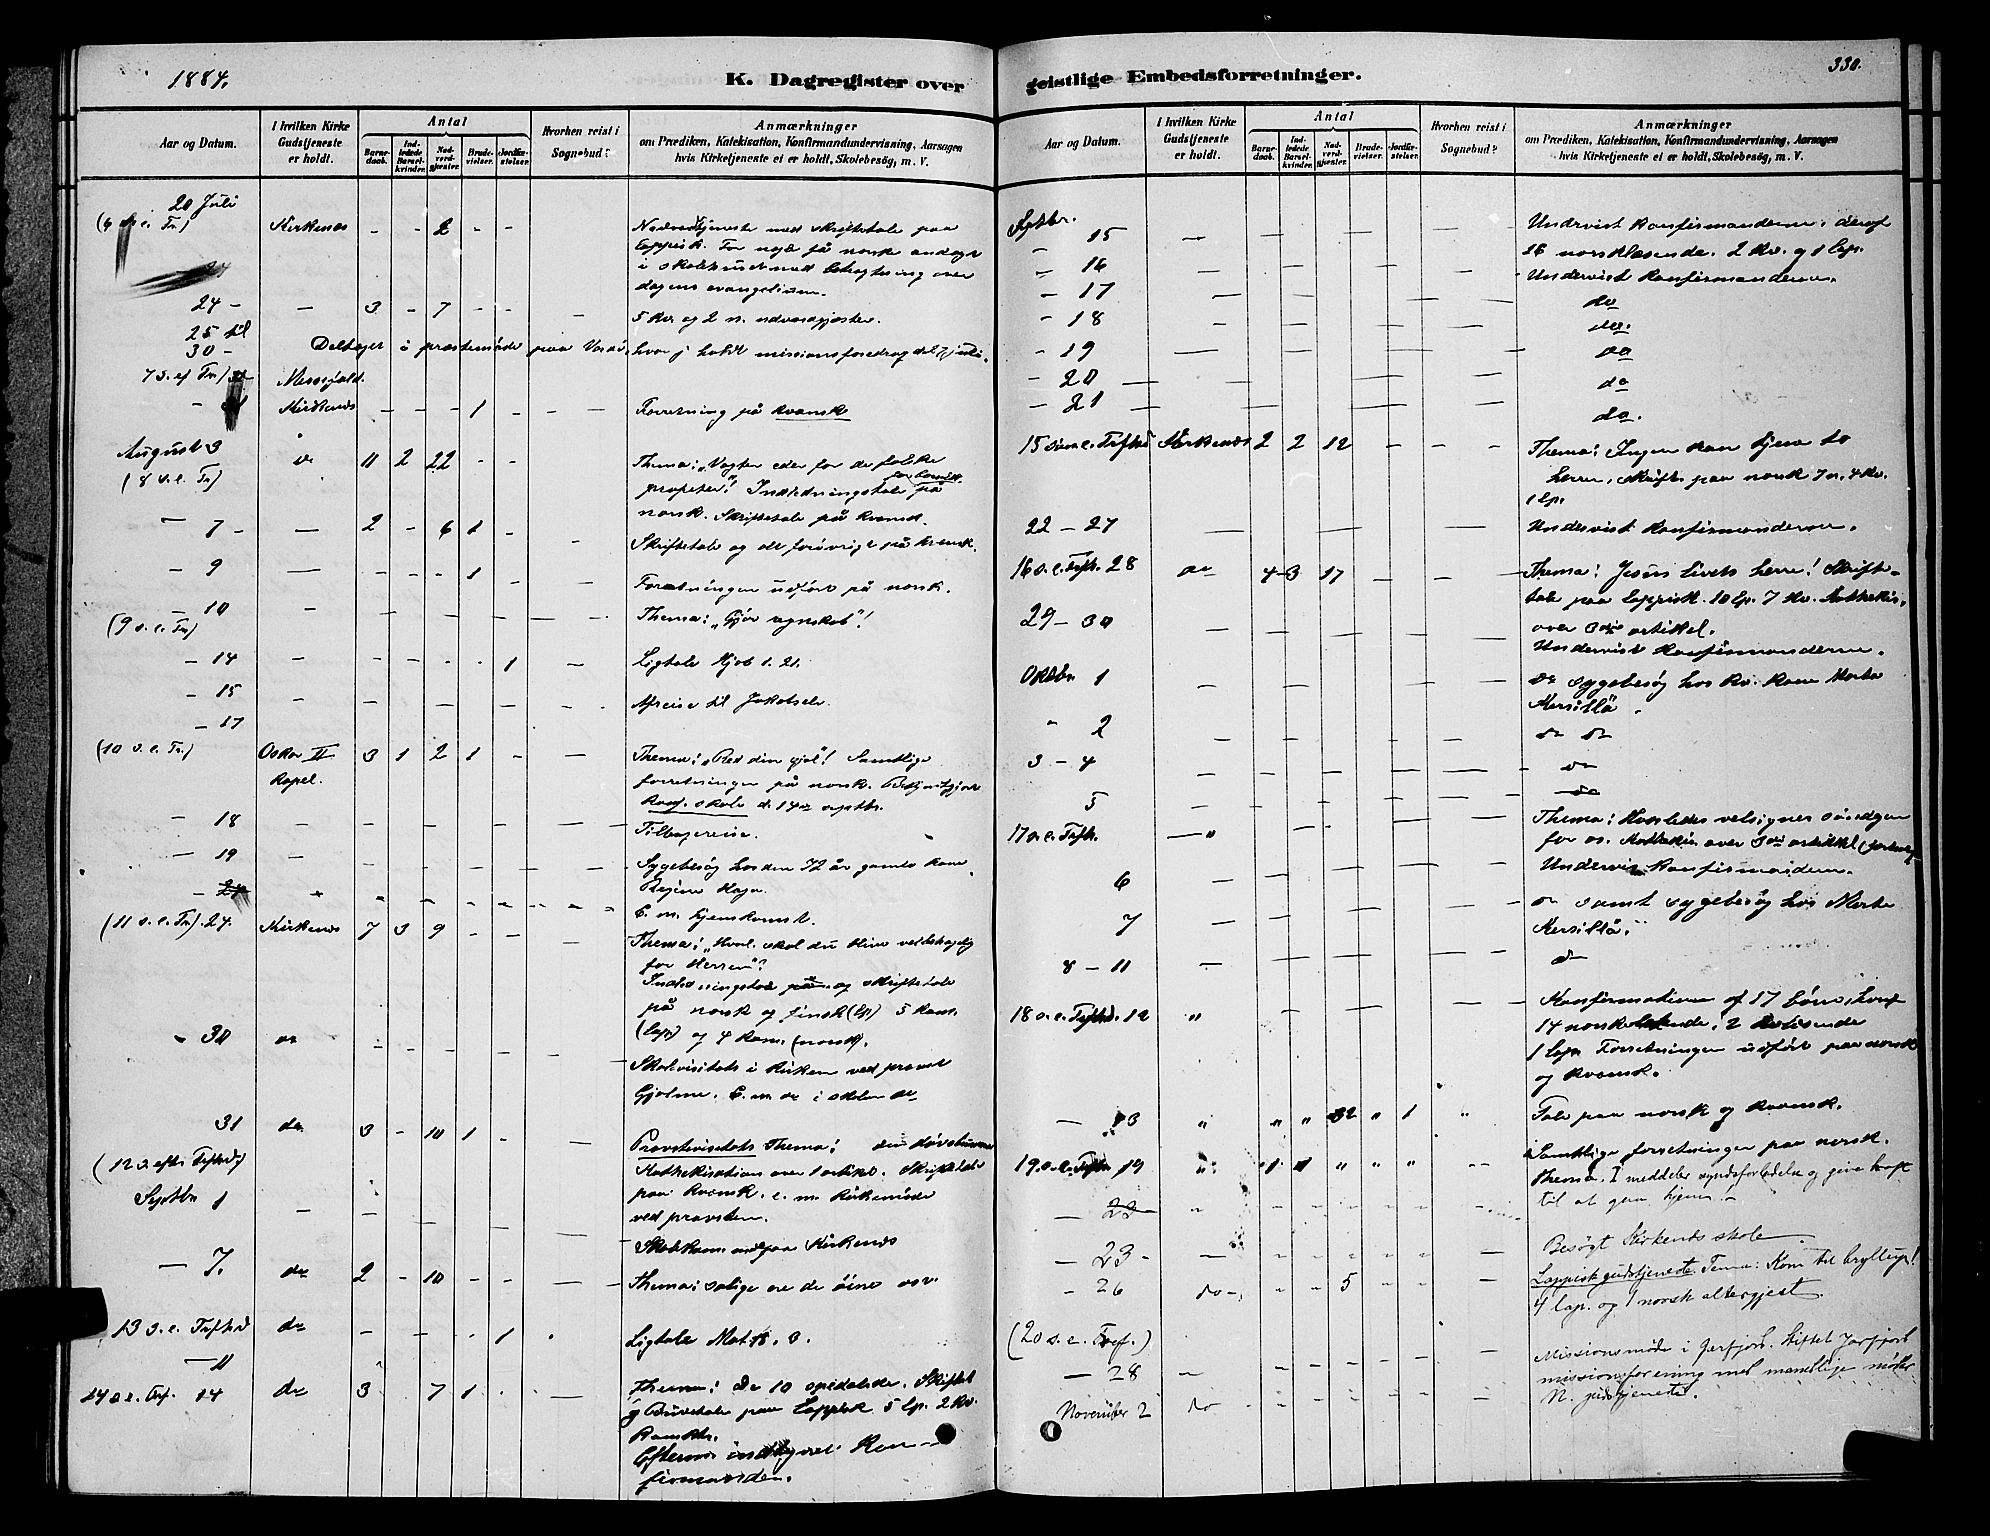 1884.
K. Dagregister over
geistlige Embedsforretninger.
330.
Aar og Datum.
I hvilken Kirke Gudstjeneste er holdt.
Antal
Barnedaab.
Indledede Barselkvinder.
Nadverdgjester.
Brudevielser.
Jordfæstelser.
Hvorhen reist i Sognebud?
Anmærkninger
om Prædiken, Katekisation, Konfirmandundervisning, Aarsagen
hvis Kirketjeneste ei er holdt, Skolebesøg, m. V.
20 Juli
(6 s. e. Tr.) Kirkenes - - 2 - -
Nadverdtjeneste med skriftetale paa
lappisk. For nogle få norske andagt
i skolehuset med betragtning over
dagens evangelium.
24 - - 3 - 7 - - -
5 kv. og 2 n. nadverdgjester.
25 til
30 - Deltager i præstemøde paa Vadsö, hvor j. holdt missionsforedrag
7 s. ef Tr.)
Kirkenes - - - 1 - - -
Forretning på kvænsk
August 3 do 11 2 22 - -
(8 s. e. Tr)
Thema: "Vogter eder for de falske
profeter! Indledningstale på
norsk. Skriftetale på kvænsk.
- 7 - - 2 - 6 1 - -
Skriftetale og det forövrigt på kvænsk.
- 9 - 1 - -
Forretningen udført på norsk.
- 10 -
(9 s. e. Tr)
Thema: "Gjör regnskab"!
- 14 - - - - - 1 -
Ligtale Hjob 1. 21.
- 15 -
Afreise til Jakobselv.
- 17
(10 s. e. Tr.) Oskar II kapel. 3 1 2 1 - -
Thema: "Red din sjæl"! Samtlige
forretninger på norsk. Bekjentgjort
Konf. skole d. 14de septbr.
- 18 -
Tilbagereise.
- 19 -
Sygebesög hos den 72 år gamle kone
E. m. hjemkomst.
(11 s. e. Tr). 24. Kirkenes 7 3 9 - - -
Thema: "Hvorl. skal du blive velbehagelig
for Herren"?
Indledningstale på og skriftetale
på norsk og finsk (lp) 5 kom.
(lapp) og 4 kom. (norsk).
- 30 do
Skolevisitats i kirken ved provst
Gjølme. E. m. do i skolen do
31 do 3 - 10 1 - -
(12 s. efter Trefhd)
Provstevisitats Thema: den døvstumme
Kathekisation over 1 artikel. Skriftetale
paa kvænsk. e. m. Kirkemöde
ved provsten.
Septbr 1
Skolekom. paa Kirkenes
- 7. do 2 - 10 - - -
Thema: salige ere de öine osv.
13 s. e. Trefhd do - - - - 1
- 11
Ligtale Mat.
14 s. e. Tref. 14 do 3 7 1 - -
Thema: De 10 spedalske. Skriftetale
og Brudetale paa Lappisk 5 lp. 2 kv.
Efterm. indskrevet Kon-
firmanden.
Aar og Datum.
I hvilken Kirke Gudstjeneste er holdt.
Antal
Barnedaab.
Indledede Barselkvinder.
Nadverdgjester.
Brudevielser.
Jordfæstelser.
Hvorhen reist i Sognebud?
Anmærkninger
om Prædiken, Katekisation, Konfirmandundervisning, Aarsagen
hvis Kirketjeneste ei er holdt, Skolebesøg, m. V.
Septbr.
15
Undervist konfirmanderne, deraf
16 norsklæsende. 2 kv. og 1 lap.
- 16
Undervist konfirmanderne.
- 17 do
- 18 do.
- 19 do
- 20 do
- 21 do.
15 søn. e. Trefhd Kirkenes 2 2 12 - - -
Thema: Ingen kan tjene to
herrer, skrift. paa norsk 7 n. 4 kv.
1 lp.
22 - 27
Undervist konfirmanderne.
16 s. e. Trefh. 28 do 4 3 17 - - -
Thema: Jesus livets herre! Skrifte-
tale paa lappisk. 10 lp. 7 kv. Kathekis.
over 3die artikkel.
29 - 30
Undervist konfirmanderne.
Oktbr 1
do sygebesög hos kv. kone Marta
Kersillä.
" 2 do do
3 - 4 do
5
17 s. e. Trefh. - "
Thema: Hvorledes velsignes söndagen
for os. Kathekis. over 3die artikkel
6
Undervist konfirmanderne.
7
do samt sygebesög hos Marta
Kersillä.
8 - 11 do
18 s. e. Trefhd. 12 "
Konfirmation af 17 börn, hvoraf
14 norsklæsende, 2 kvl.
1 lap. Forretningen udført paa norsk
og kvænsk.
- 13 " " " 32 " 1 "
Tale paa norsk og kvænsk.
19 s. e. Trefh 19 " 1 1 " " " -
Samtlige forretninger paa norsk.
Thema. I meddeler syndsforladelse og give kraft
til at gaa hjem.
- 23
- 23 -
Besögt Kirkenes skole.
- 26 do - " " 5 - - -
Lappisk gudstjeneste. Tema: Kom til bryllup!
4 lap. og 1 norsk altergjest.
(20 s. e. Tref.)
- 28 -
Missionsmöde i Jarfjord. Stiftet Jarfjord
missionsforening med maanedlige möter
November 2 do
N. gudstjeneste.